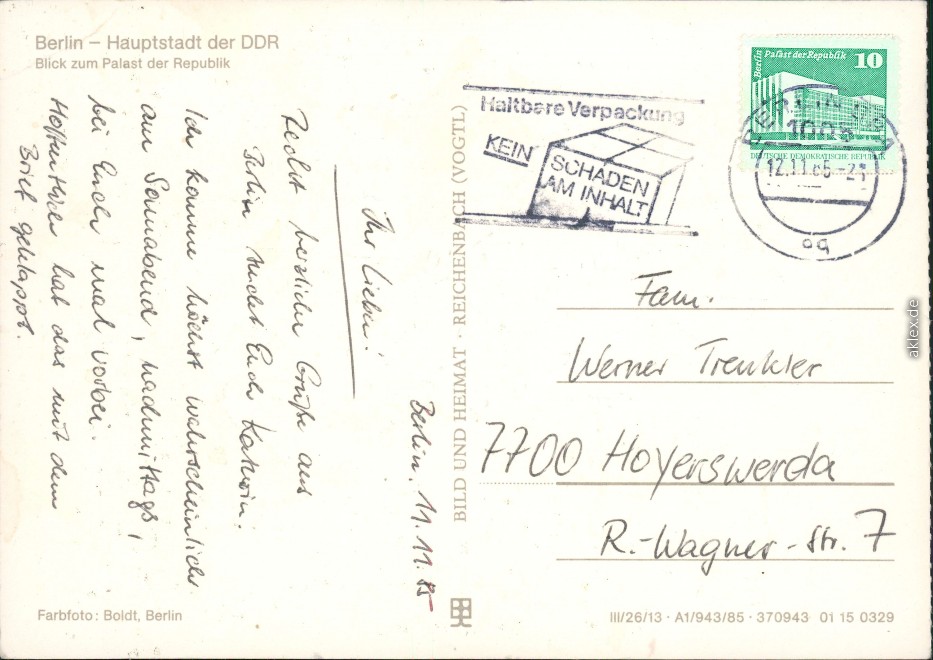 Berlin – Hauptstadt der DDR
Blick zum Palast der Republik
Berlin, 11.11.85
Ihr Lieben!
Recht herzliche Grüße aus
Berlin sendet Euch Katrin.
Ich komme höchst wahrscheinlich
am Sonnabend, nachmittags,
bei Euch mal vorbei.
Hoffentlich hat das mit dem
Brief geklappt.
Farbfoto: Boldt, Berlin
BILD UND HEIMAT · REICHENBACH (VOGTL)
Haltbare Verpackung
KEIN SCHADEN
AM INHALT
Berlin Palast der Republik 10
DEUTSCHE DEMOKRATISCHE REPUBLIK
12.11.85-21
Fam.
Werner Trenkler
7700 Hoyerswerda
R.-Wagner-Str. 7
III/26/13 · A1/943/85 · 370943 01 15 0329
aklex.de